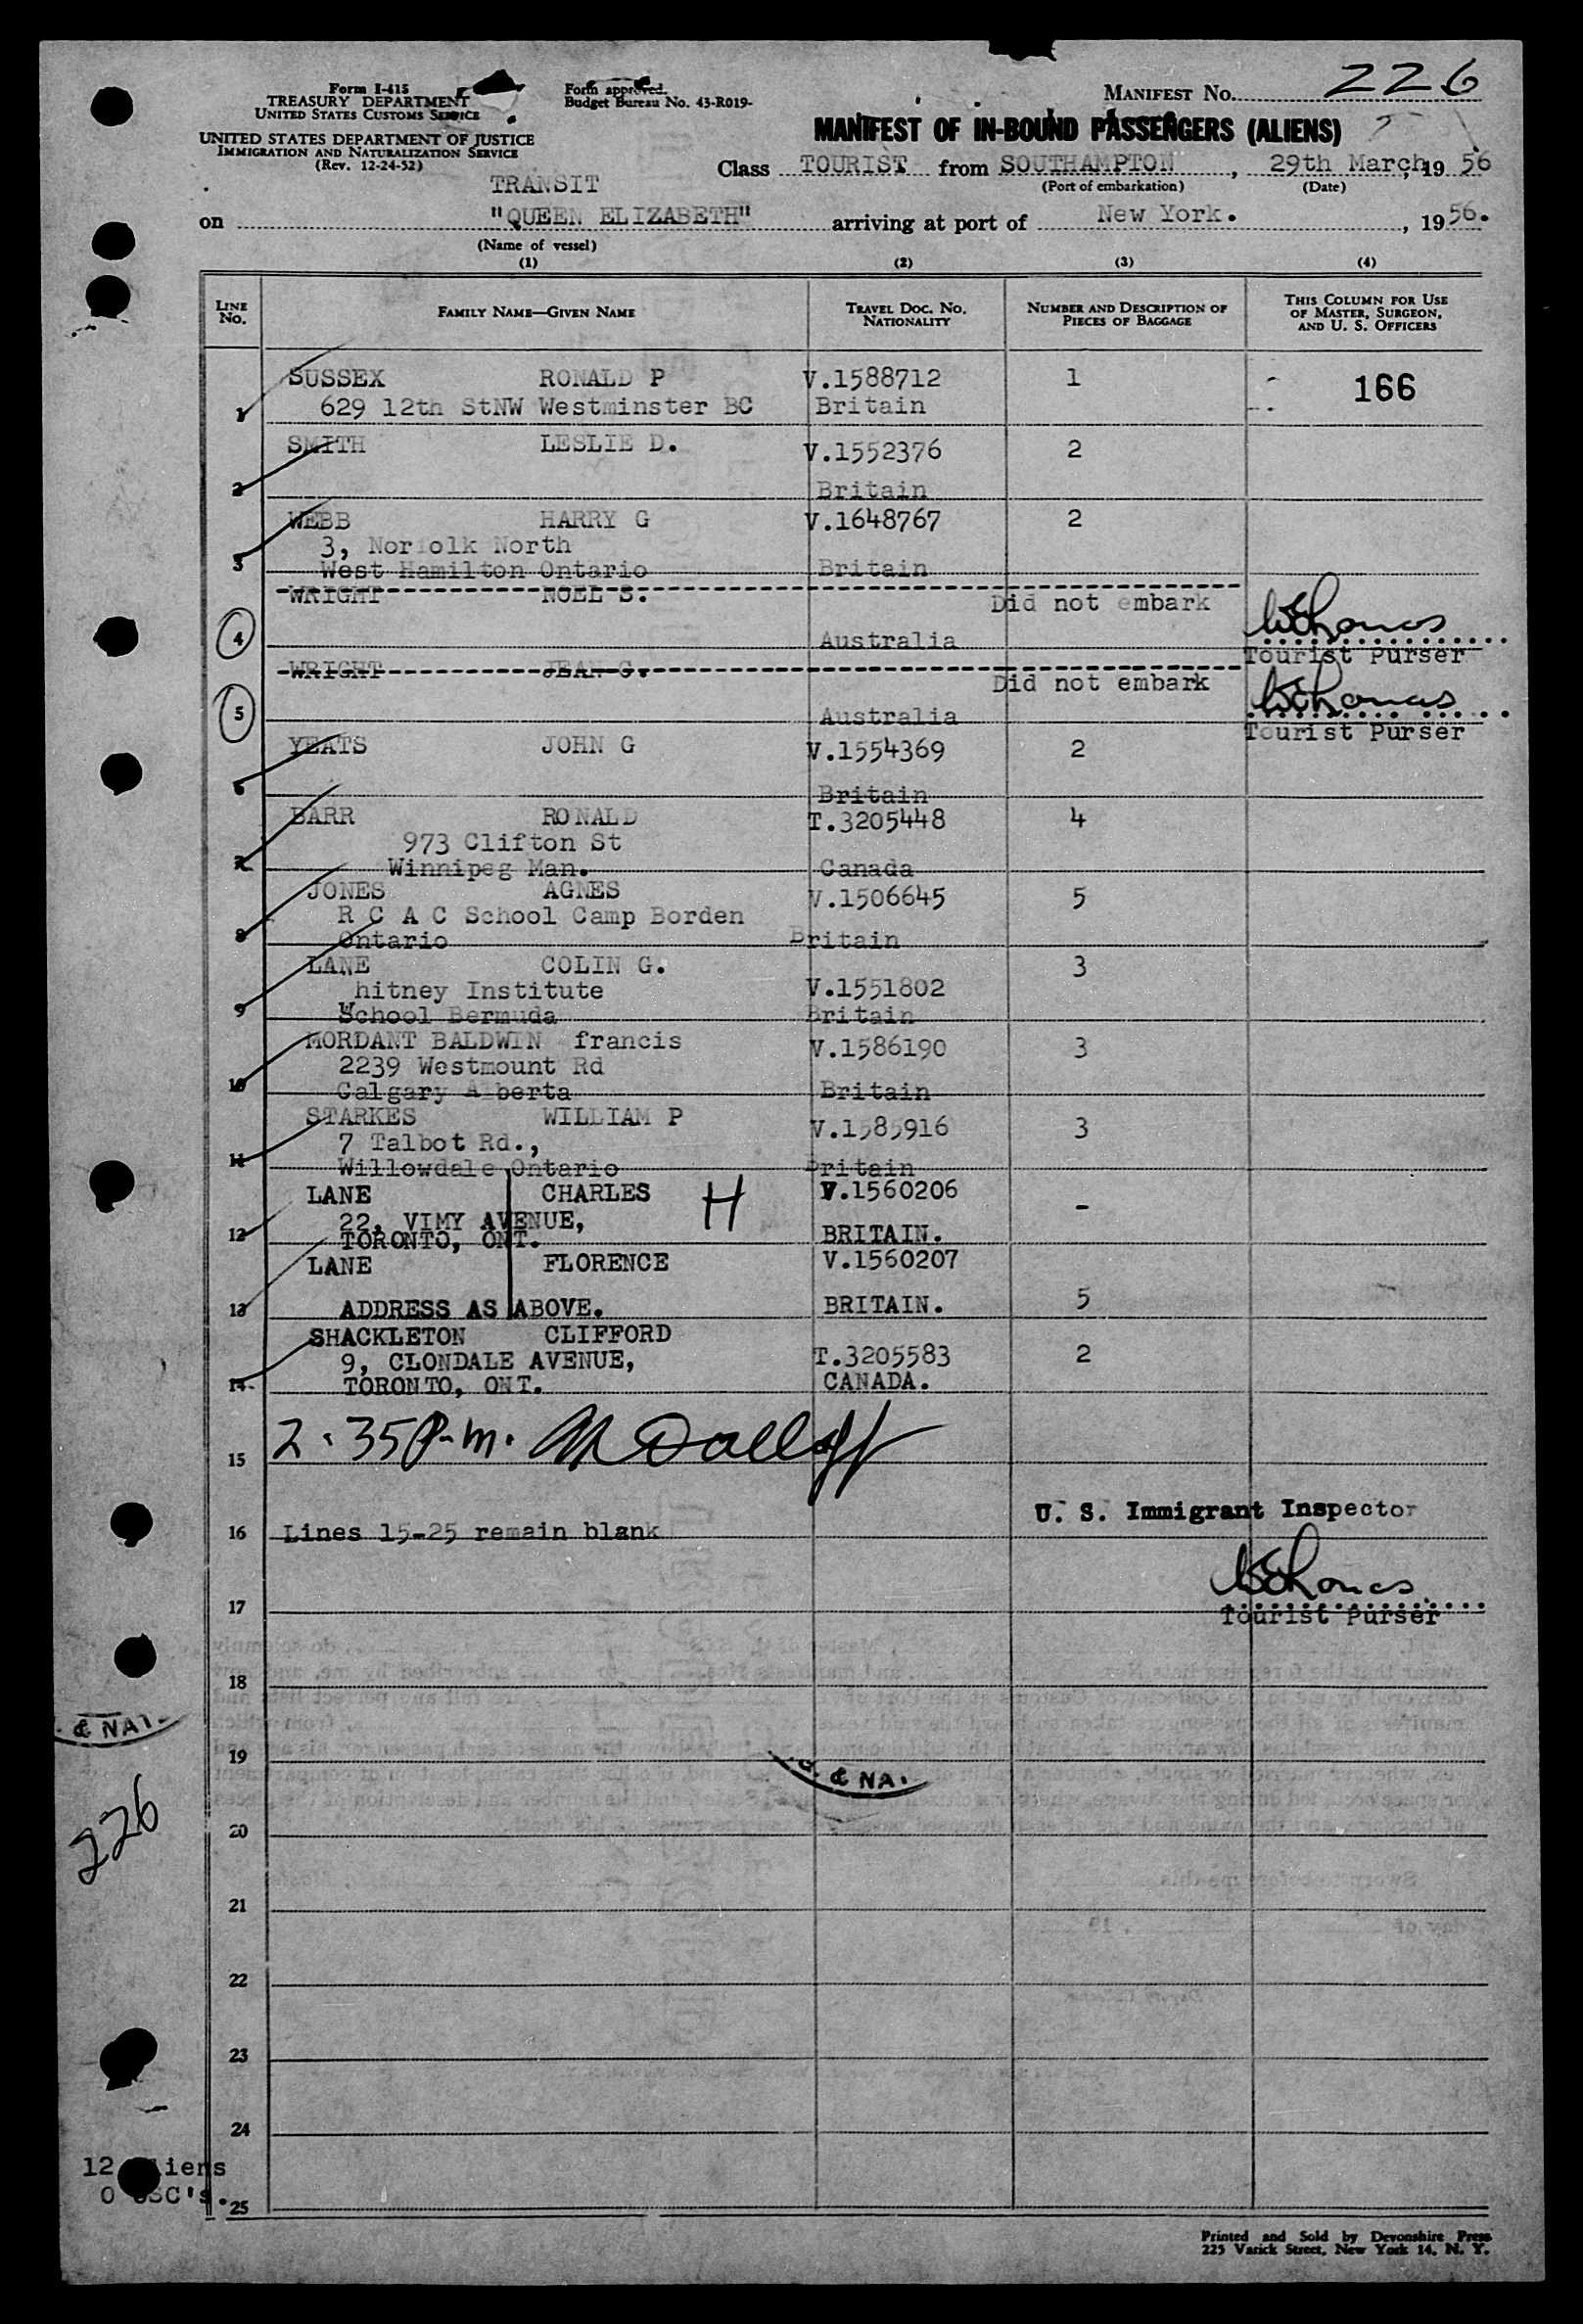 Form I-415
TREASURY DEPARTMENT
UNITED STATES CUSTOMS SERVICE
UNITED STATES DEPARTMENT OF JUSTICE
IMMIGRATION AND NATURALIZATION SERVICE
(Rev. 12-24-52)
Form approved.
Budget Bureau No. 43-R019-
MANIFEST NO. 226
MANIFEST OF IN-BOUND PASSENGERS (ALIENS)
Class TOURIST from SOUTHAMPTON, 29th March, 19 56
(Port of embarkation) (Date)
TRANSIT
on "QUEEN ELIZABETH" arriving at port of New York. , 19 56.
(Name of vessel)
(1) (2) (3) (4)
LINE NO. FAMILY NAME—GIVEN NAME TRAVEL DOC. NO. NATIONALITY NUMBER AND DESCRIPTION OF PIECES OF BAGGAGE THIS COLUMN FOR USE OF MASTER, SURGEON, AND U. S. OFFICERS
SUSSEX RONALD P V.1588712 1 166
1 629 12th StNW Westminster BC Britain
SMITH LESLIE D. V.1552376 2
2 Britain
WEBB HARRY G V.1648767 2
3, Norfolk North
3 West Hamilton Ontario Britain
WRIGHT NOEL S. Did not embark
4 Australia Tourist Purser
WRIGHT JEAN G. Did not embark
5 Australia Tourist Purser
YEATS JOHN G V.1554369 2
6 Britain
BARR RONALD T.3205448 4
973 Clifton St
7 Winnipeg Man. Canada
JONES AGNES V.1506645 5
R C A C School Camp Borden
8 Ontario Britain
LANE COLIN G. 3
Whitney Institute V.1551802
9 School Bermuda Britain
MORDANT BALDWIN francis V.1586190 3
2239 Westmount Rd
10 Calgary Alberta Britain
STARKES WILLIAM P V.1585916 3
7 Talbot Rd.,
11 Willowdale Ontario Britain
LANE CHARLES H V.1560206 -
22, VIMY AVENUE,
12 TORONTO, ONT. BRITAIN.
LANE FLORENCE V.1560207
13 ADDRESS AS ABOVE. BRITAIN. 5
SHACKLETON CLIFFORD
9, CLONDALE AVENUE, T.3205583 2
14 TORONTO, ONT. CANADA.
2.35 P.m.
15
U. S. Immigrant Inspector
16 Lines 15-25 remain blank
17 Tourist Purser
18
& NAT
19
& NA
226
20
21
22
23
24
12 Aliens
0 USC's.
25
Printed and Sold by Devonshire Press
225 Varick Street, New York 14, N. Y.